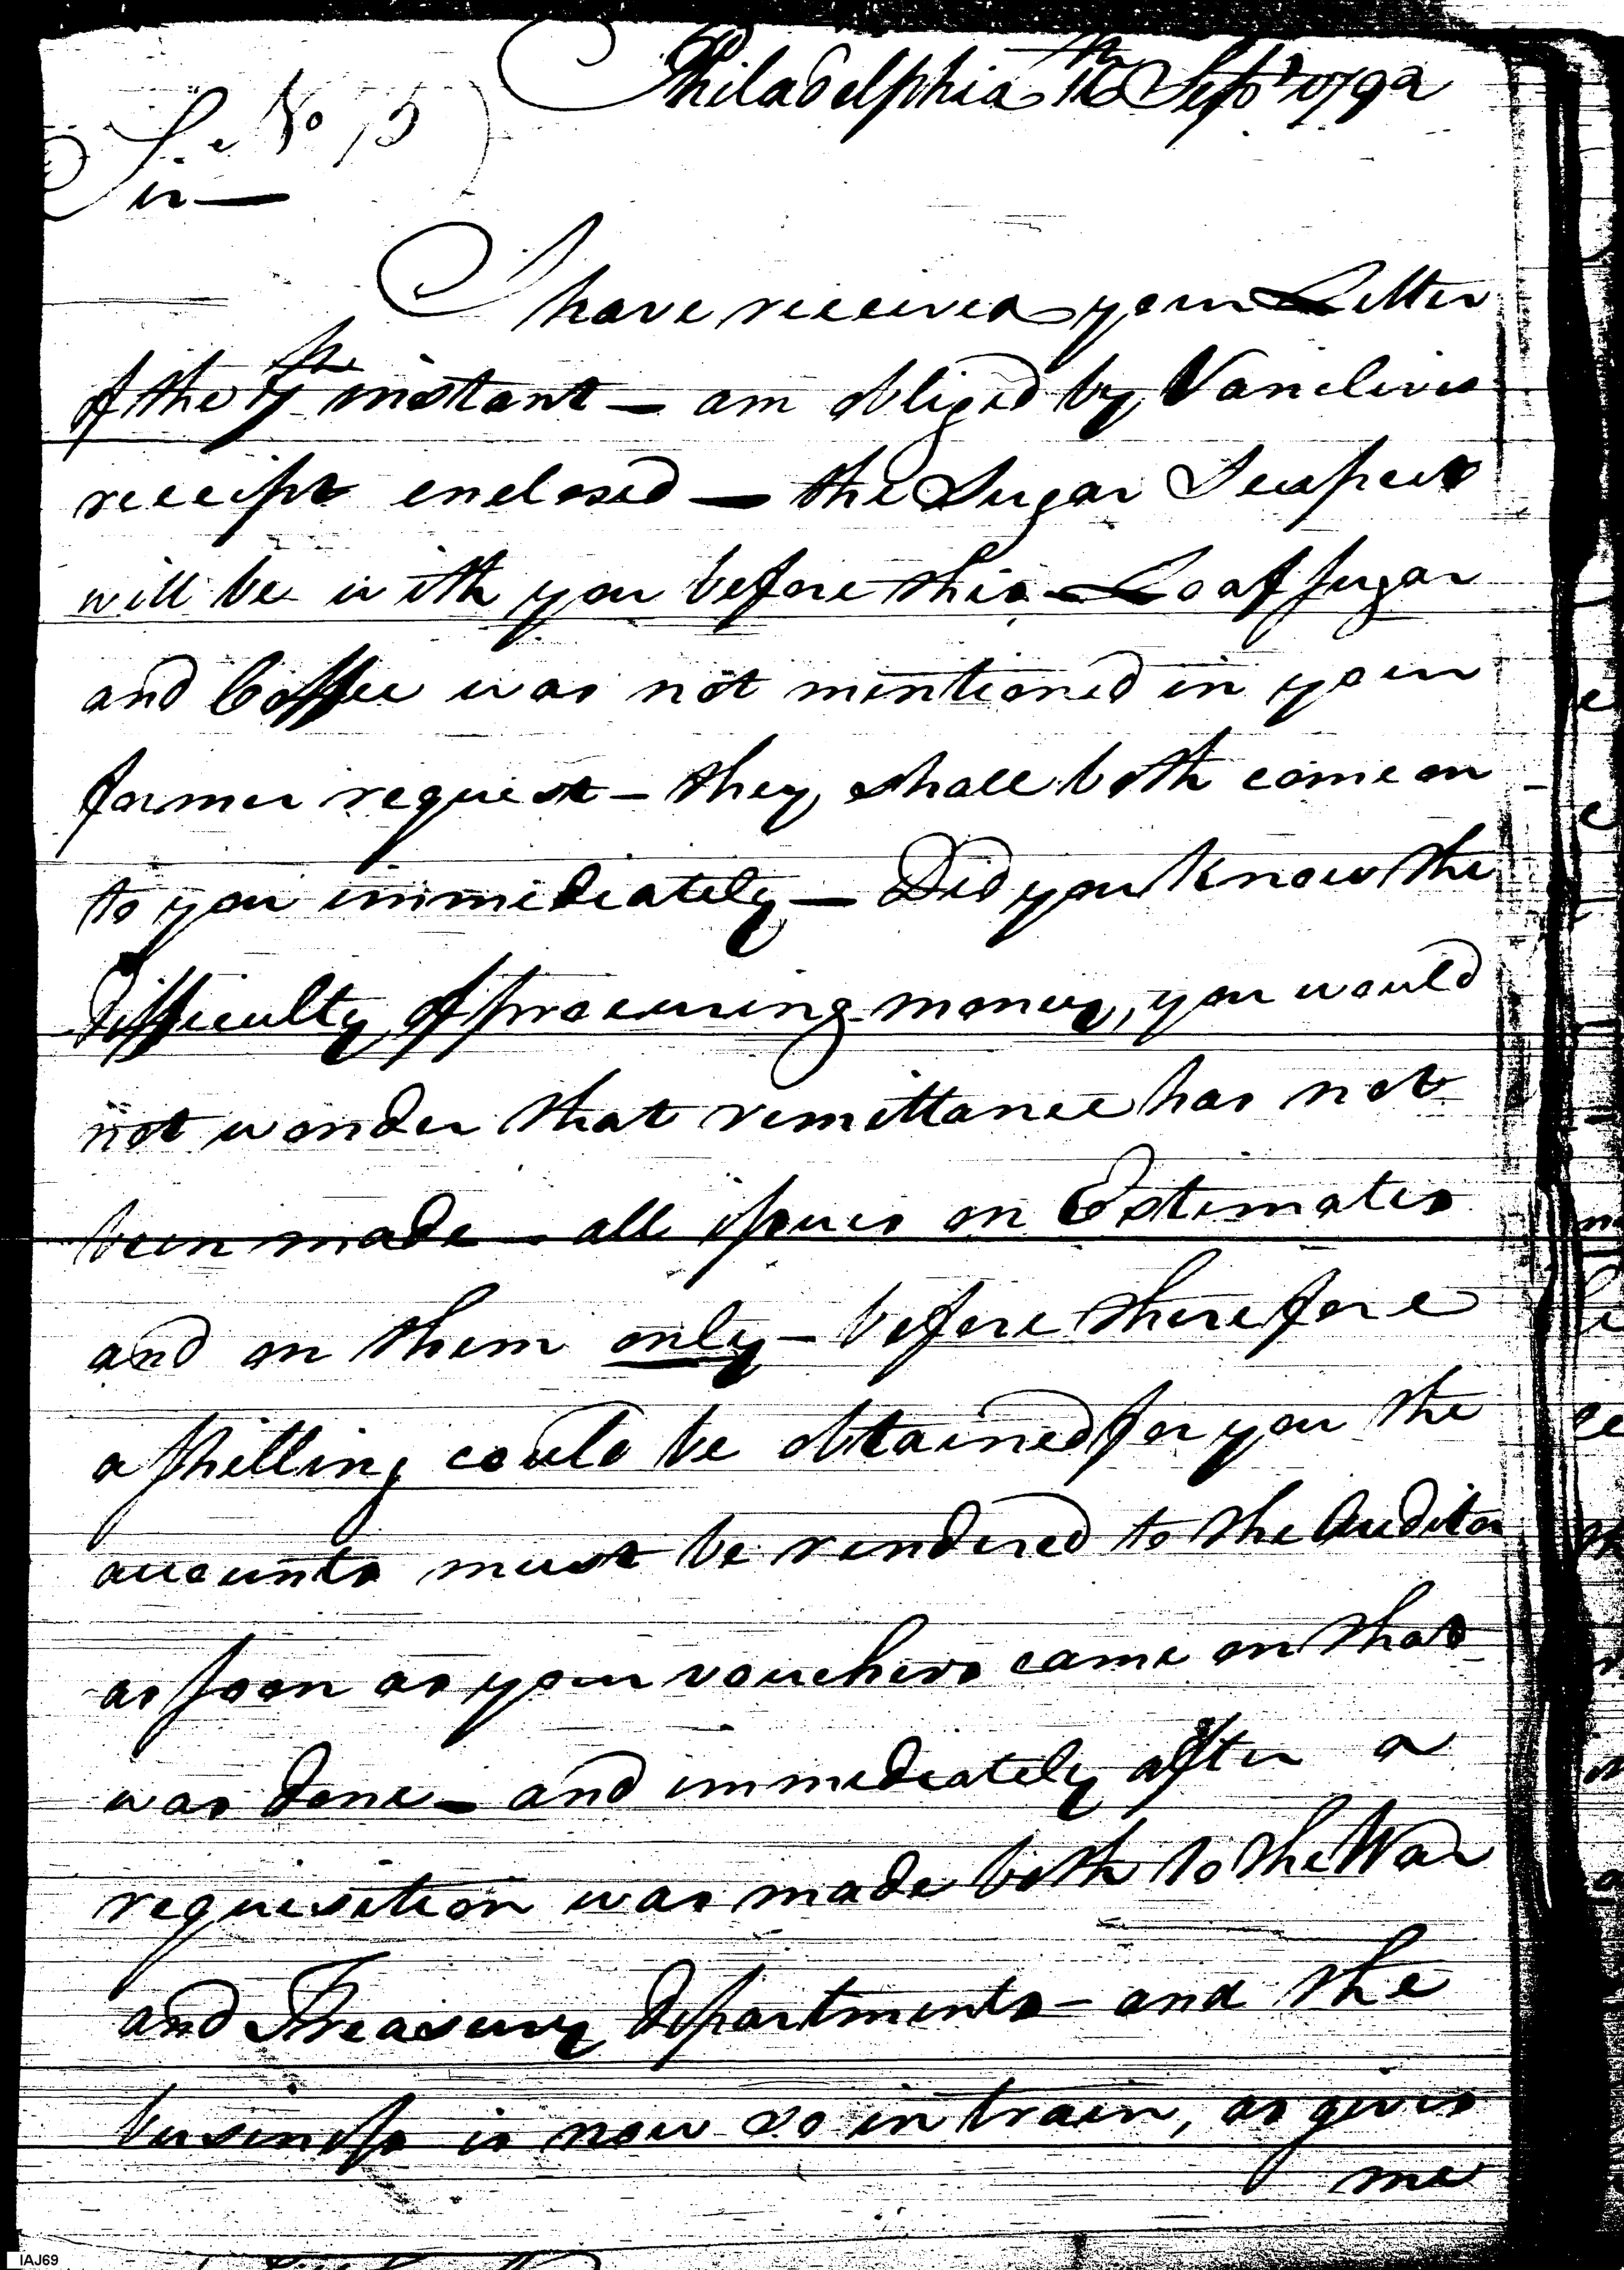 Philadelphia 16th Sept 1792
No 15)
Sir —
I have received your Letter
of the 9th instant — am obliged by Vanclives
receipt enclosed — the Sugar
will be with you before this — Loaf sugar
and Coffee was not mentioned in your
former request — they shall both come on
to you immediately — Did you know the
difficulty of procuring money, you would
not wonder that remittance has not
been made — all issues on Estimates
and on them only — before therefore
a shilling could be obtained for you the
accounts must be rendered to the Auditor
as soon as your vouchers came on that
was done — and immediately after a
requisition was made both to the War
and Treasury departments — and the
business is now so in train, as gives
me
IAJ69